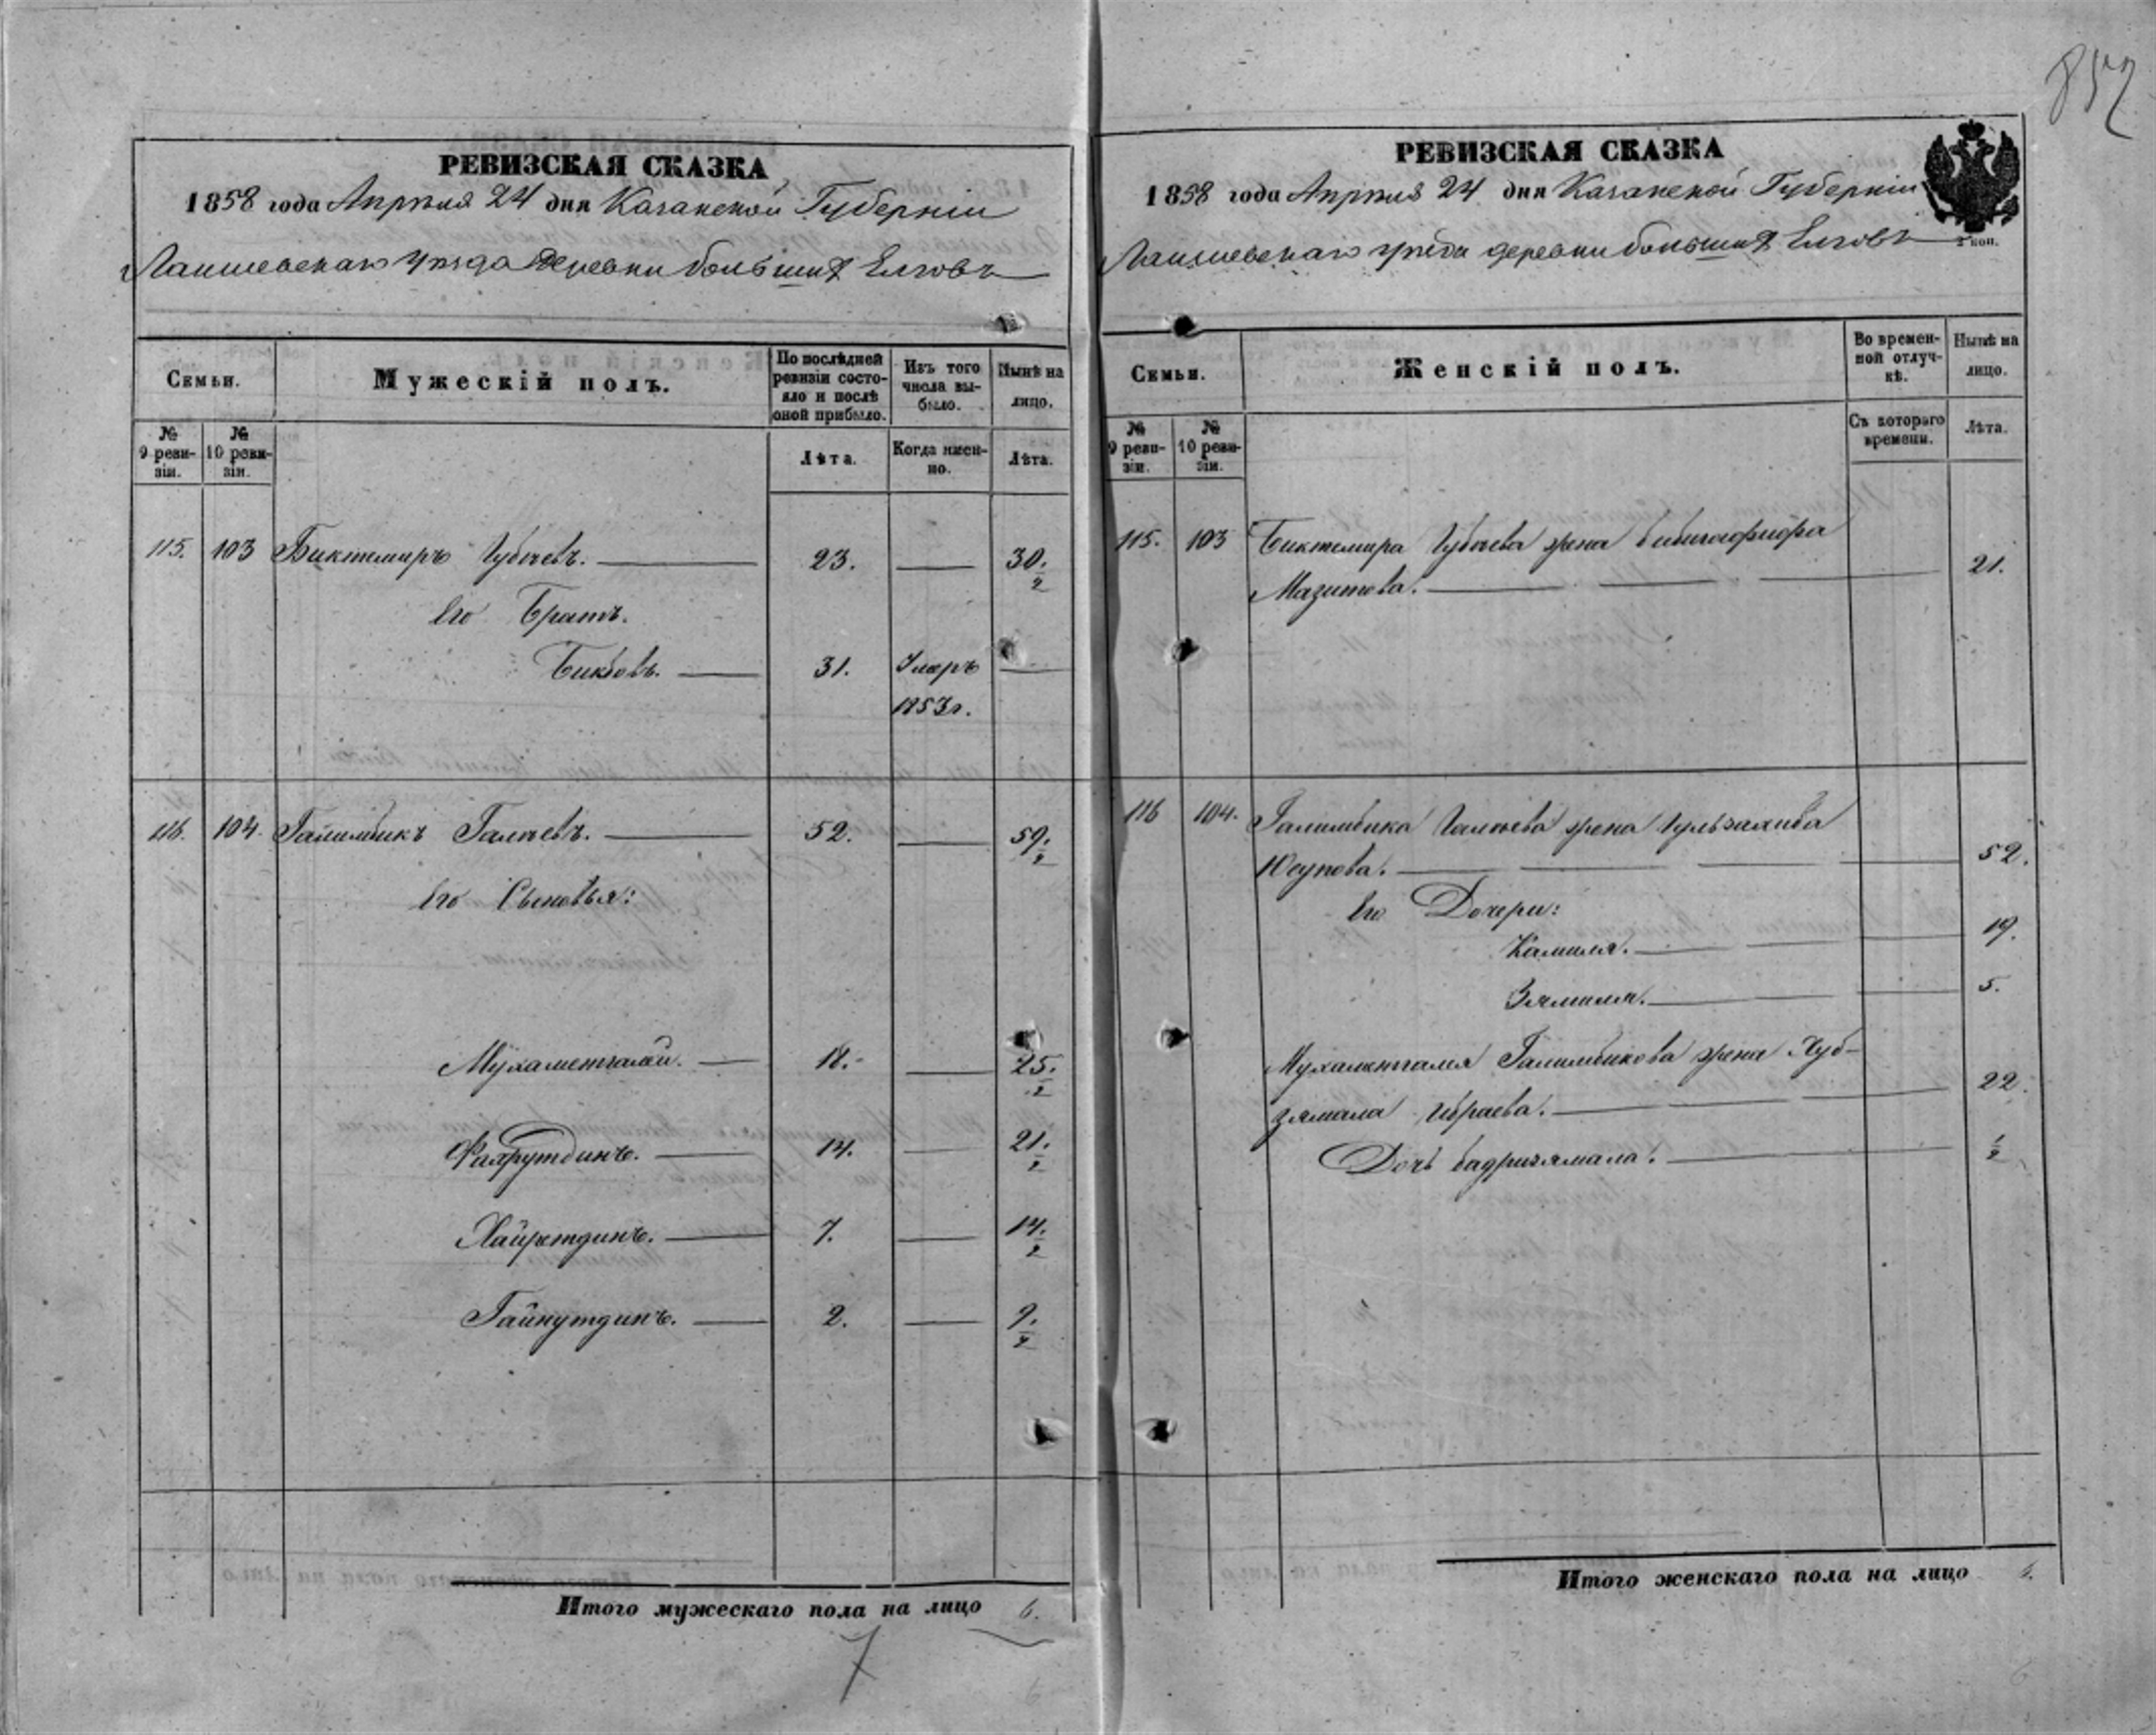 852
РЕВИЗСКАЯ СКАЗКА
1858 года Апрѣля 24 дня Казанской Губерніи
Лаишевскаго уѣзда деревни большихъ Елговъ
Семьи.
Мужескій полъ.
По послѣдней ревизіи состояло и послѣ оной прибыло.
Изъ того числа выбыло.
Нынѣ на лицо.
№ 9 ревизіи.
№ 10 ревизіи.
Лѣта.
Когда именно.
Лѣта.
115. 103 Биктемиръ Губаевъ. 23. 30. 2
Его Братъ.
Бикбовъ. 31. Умеръ
1853 г.
116. 104. Галимбикъ Галѣевъ. 52. 59. 2
Его Сыновья:
Мухаметгалѣй. 18. 25. 2
Фахрутдинъ. 14. 21. 2
Хайретдинъ. 7. 14. 2
Гайнутдинъ. 2. 9. 2
Итого мужескаго пола на лицо 6.
7
6
РЕВИЗСКАЯ СКАЗКА
1858 года Апрѣля 24 дня Казанской Губерніи
Лаишевскаго уѣзда деревни большихъ Елговъ
коп.
Семьи.
Женскій полъ.
Во временной отлучкѣ.
Нынѣ на лицо.
№ 9 ревизіи.
№ 10 ревизіи.
Съ котораго времени.
Лѣта.
115. 103 Биктемира Губаева жена
Мазитова. 21.
116 104. Галимбика Галѣева жена
Юсупова. 52.
Его Дочери:
Камиля. 19.
Зямиля. 5.
Мухаметгалея Галимбикова жена Хуб-
зямала Ибраева. 22.
Дочь бадризямала. 1/2
Итого женскаго пола на лицо